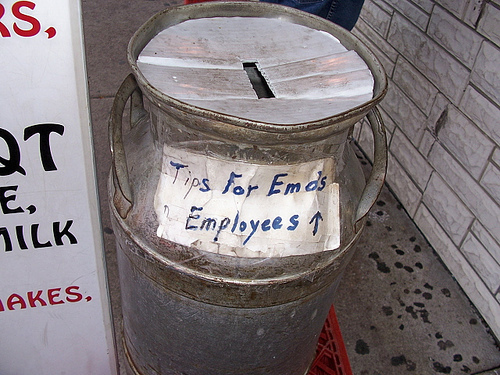 RS,
QT
E,
MILK
AKES,
Tips For Emo's
Employees ↑